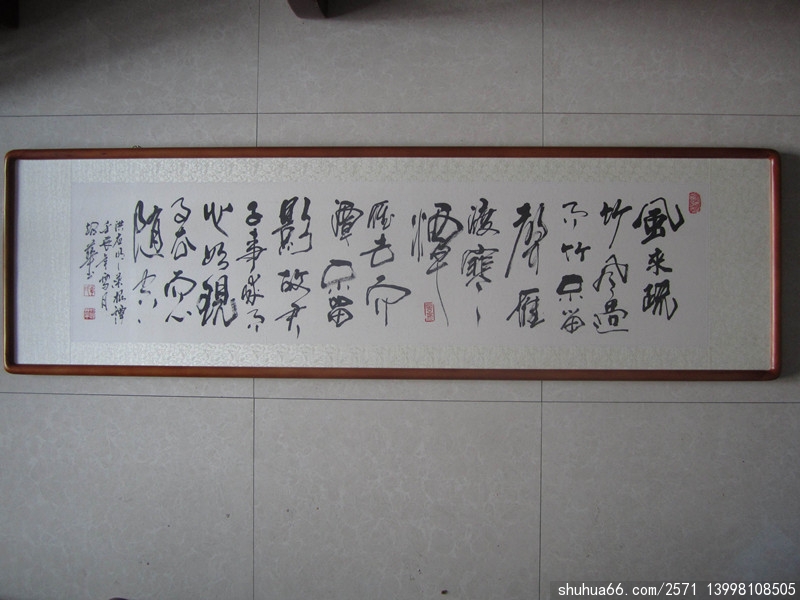 風來疏
竹風過
而竹不留
聲雁
渡寒
潭
雁去而
潭不留
影故君
子事來而
心始現
事去而心
随空
洪应明菜根譚
壬辰年雪月
華书
shuhua66.com/2571 13998108505